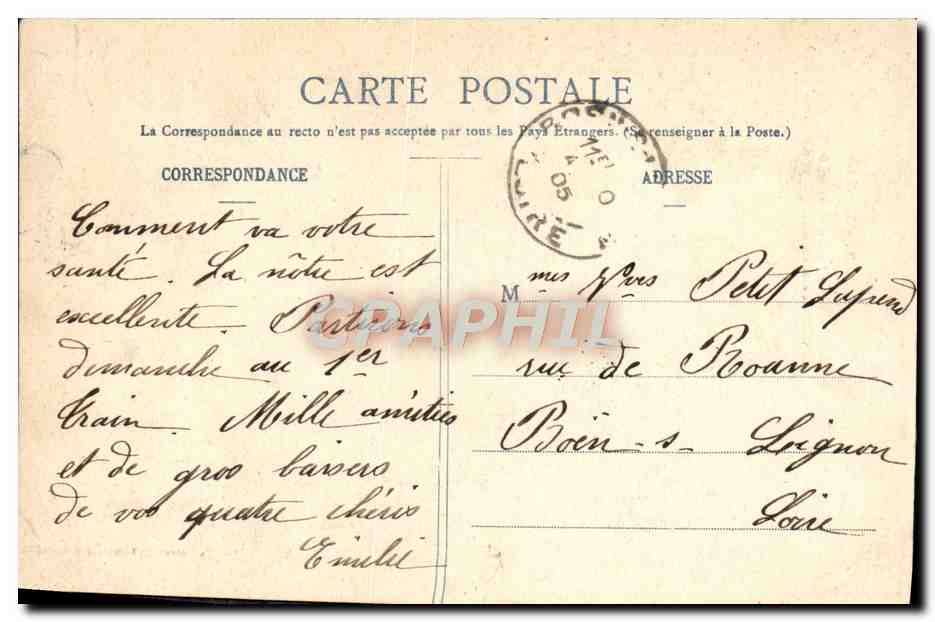 CARTE POSTALE
La Correspondance au recto n'est pas acceptée par tous les Pays Étrangers. (Se renseigner à la Poste.)
CORRESPONDANCE
Comment va votre
santé. La nôtre est
excellente. Partirons
dimanche au 1er
train. Mille amitiés
et de gros baisers
de vos quatre chéris
Emilie
ADRESSE
Mmes Vves Petit
rue de Roanne
Boën-s-Lignon
Loire
11E
4
05
LOIRE
CPAPHIL